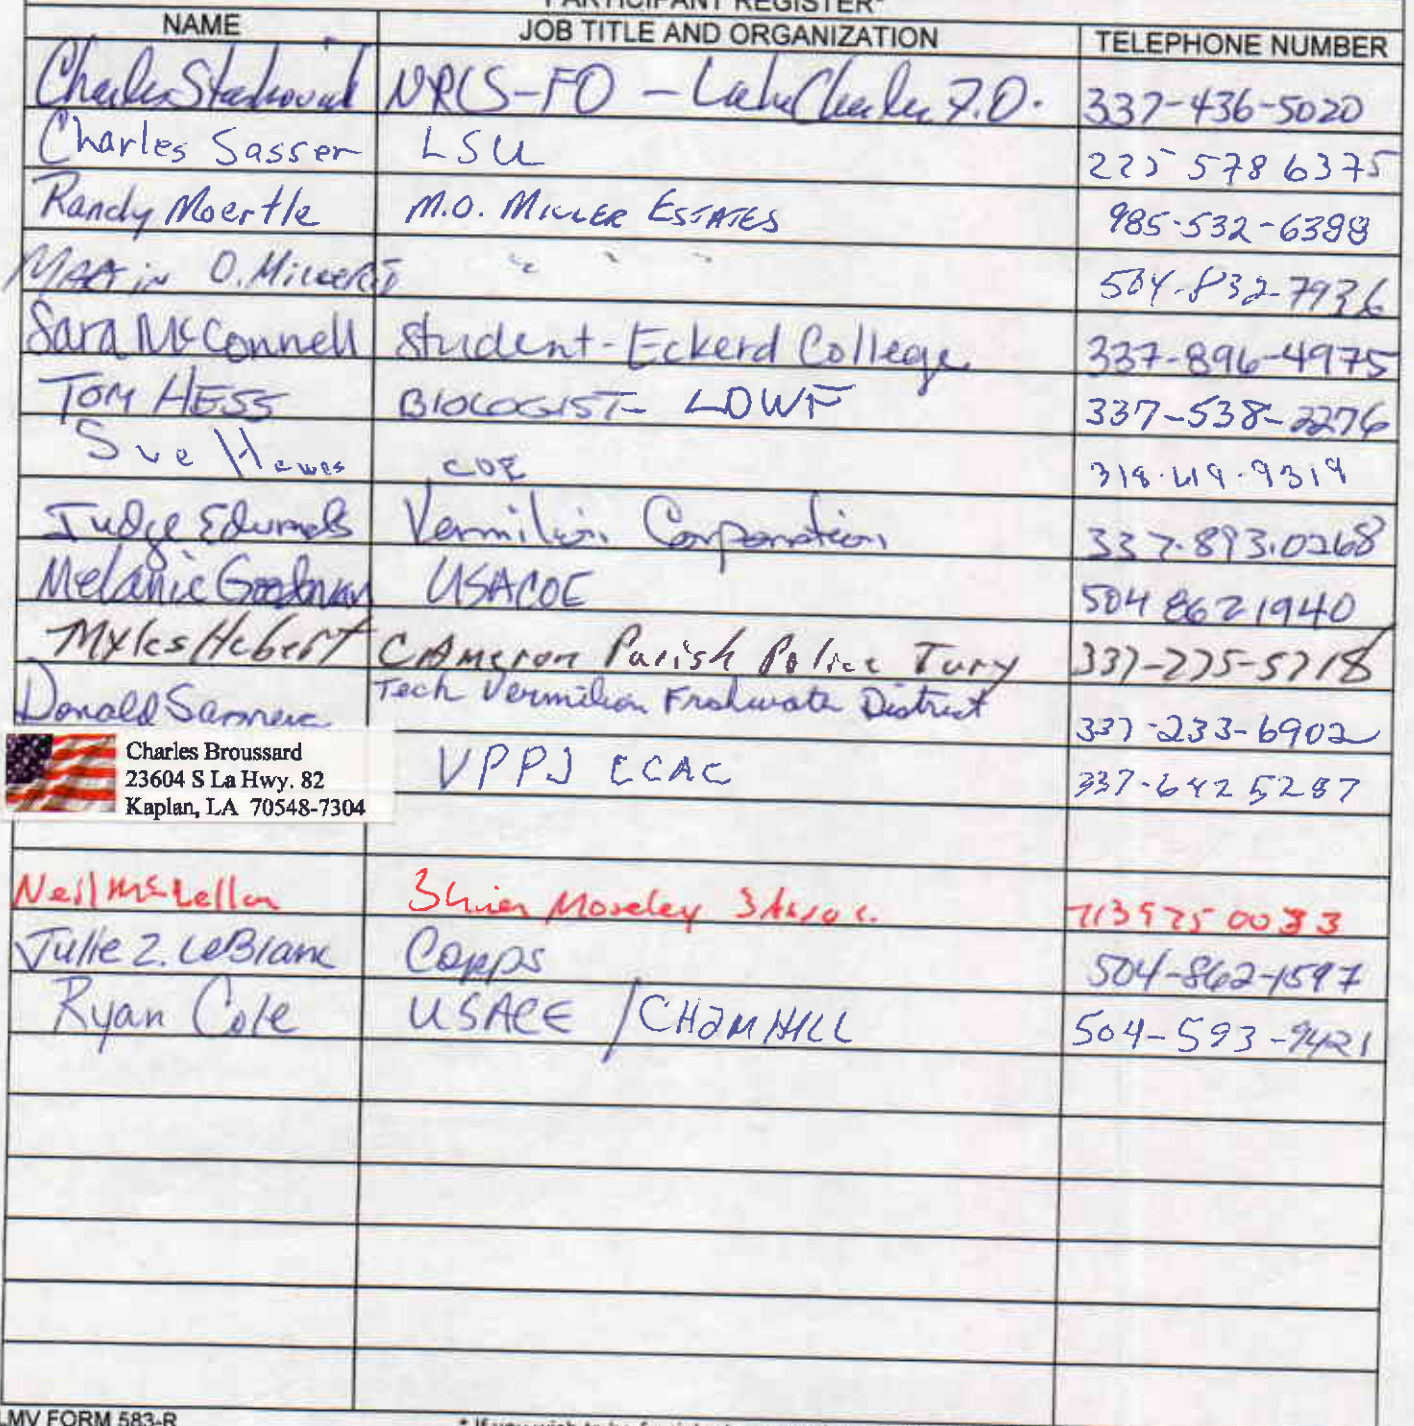 PARTICIPANT REGISTER*
NAME JOB TITLE AND ORGANIZATION TELEPHONE NUMBER
Charles NRCS-FO - Lake Charles F.O. 337-436-5020
Charles Sasser LSU 225 578 6375
Randy Moertle M.O. MILLER ESTATES 985-532-6388
MARTIN O. Miller II " " " 504-832-7936
Sara McConnell Student-Eckerd College 337-896-4975
TOM HESS BIOLOGIST- LDWF 337-538-2276
Sue Hawes COE
Judge Edwards Vermilion Corporation 337.893.0268
Melanie Goodman USACOE 504 862 1940
Myles Hebert CAmeron Parish Police Jury 337-775-5718
Donald Tech Vermilion Freshwater District 337-233-6902
Charles Broussard
23604 S La Hwy. 82
Kaplan, LA 70548-7304
VPPJ CCAC 337-642 5287
Neil McLellan Shiner Moseley & Assoc. 713 975 0033
Julie Z. LeBlanc Copps 504-862-1597
Ryan Cole USACE / CH2M HILL 504-593-9421
LMV FORM 583-R